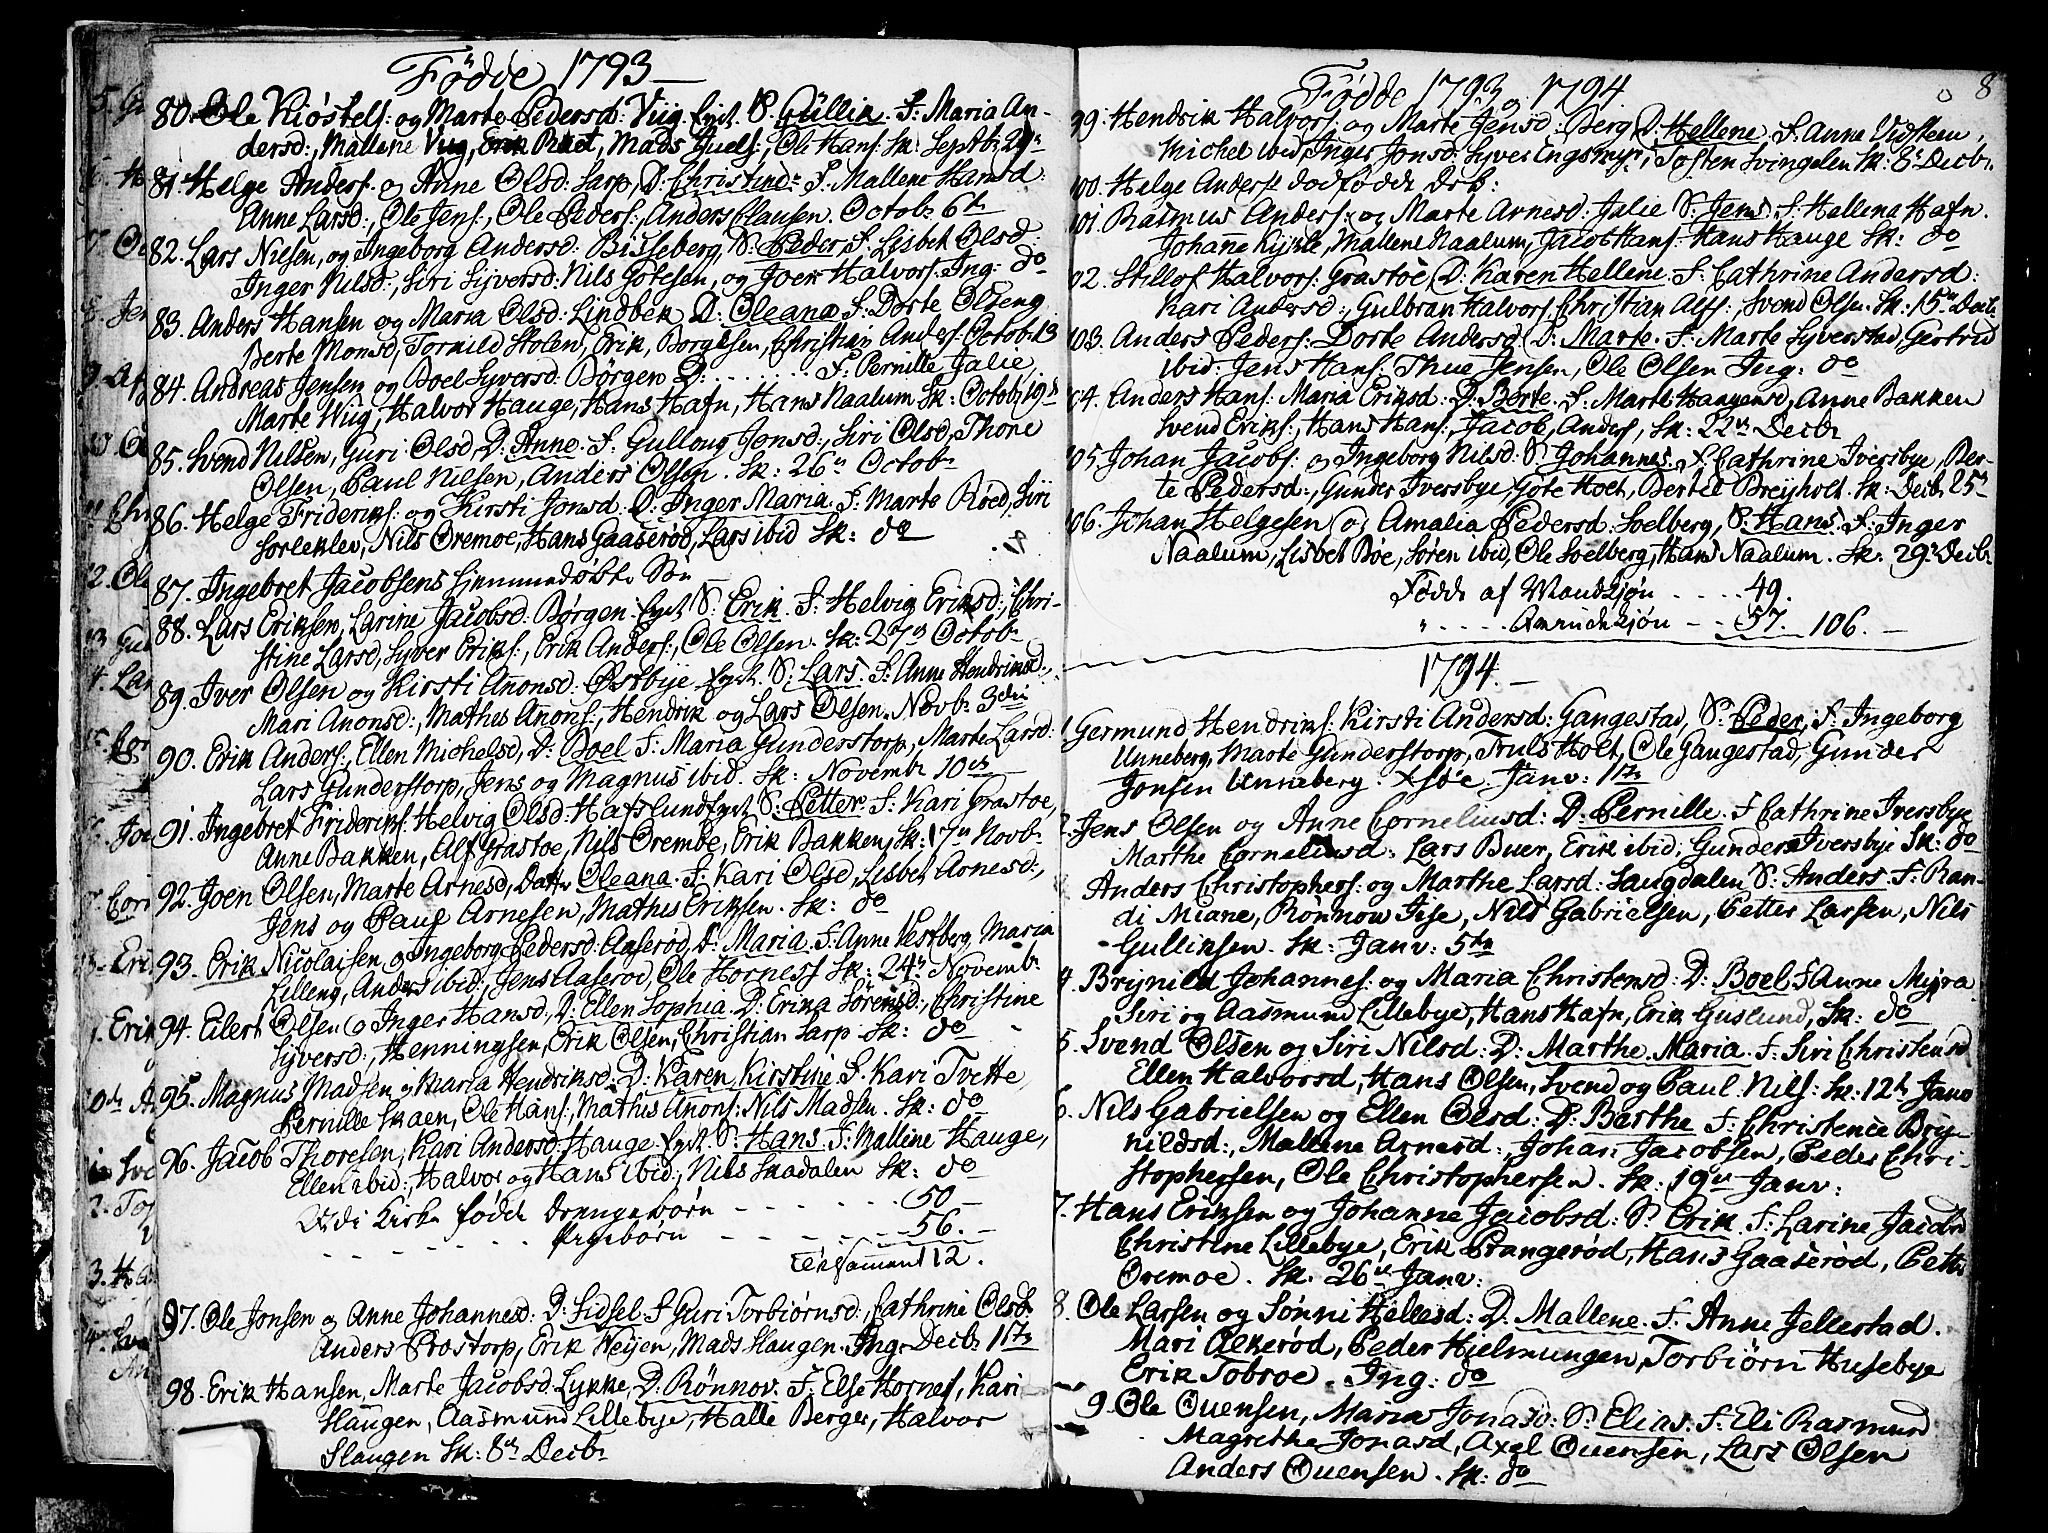 Födde 1793
80. Ole Kiöstelf: og Marte Pedersd: Viig S. Güllik. F: Maria An-
dersd:, Mallene Viig, Erik Mads Juels:, Ole Hans: Sk: Septb: 29de
81. Helge Anders: og Anne Olsd: Sarp, D: Christine F. Mallene Hansd:
Anne Larsd:, Ole Jens:, Ole Peders:, Anders Clausen. Octob: 6te
82. Lars Nielsen, og Ingeborg Andersd: Bisseberg, S: Peder, F: Lisbet Olsd:
Inger Nilsd:, Siri Syversd: Nils Götesen, og Joen Halvors: Ing: do
83. Anders Hansen og Maria Olsd: Lindbek D: Oleana F: Dorte Olseng
Berte Monsd, Tornild Stolen, Erik Borgesen, Christian Anders: Octob: 13
84. Andreas Jensen og Boel Syversd: Börgen D: . . . . . . F: Pernille Jalie,
Marte Wiig, Halvor Hauge, Hans Hafn, Hans Naalum Sk: Octob: 19
85. Svend Nilsen, Guri Olsd, D: Anne. F: Gulloug Jonsd:, Siri Olsd, Thore
Olsen, Paul Nilsen, Anders Olsen. Sk: 26 Octob:
86. Helge Frideriks: og Kirsti Jonsd: D: Inger Maria. F: Marte Röed, Siri
Sorleklev, Nils Oremoe, Hans Gaaseröd, Lars ibid Sk: do
87. Ingebret Jacobsens hjemmedöbte Sön
88. Lars Eriksen, Larine Jacobsd: Börgen S: Erik. F: Helvig Eriksd:, Chri-
stine Larsd, Syver Eriks:, Erik Anders:, Ole Olsen. Sk: 27 Octob:
89. Iver Olsen og Kirsti Anonsd: Östbye S: Lars. F: Anne Hendriksd:,
Mari Anonsd:, Mathes Anons:, Hendrik og Lars Olsen. Novb: 3die
90. Erik Anders:, Ellen Michelsd, D: Boel F: Maria Gunderstorp, Marte Larsd:
Lars Gunderstorp, Jens og Magnus ibid. Sk: Novemb: 10de
91. Ingebret Frideriks: Helvig Olsd: Hafslund S: Petter. F: Kari Grastoe,
Anne Bakken, Alf Grastoe, Nils Oremoe, Erik Bakken, Sk: 17 Novb:
92. Joen Olsen, Marte Arnesd, Datter Oleana. F: Kari Olsd, Lisbet Arnesd:,
Jens og Paul Arnesen, Mathis Eriksen. Sk: do
93. Erik Nicolaisen og Ingeborg Pedersd: Aaseröd, D: Maria. F: Anne Vestberg, Maria
Lilleng, Anders ibid:, Jens Aaseröd, Ole Horness Sk: 24 Novemb:
94. Eilert Olsen og Inger Hansd, D: Ellen Sophia. D: Erika Sörensd:, Christine
Syversd:, Henningsen, Erik Olsen, Christian Sarp Sk: do
95. Magnus Madsen, og Maria Hendriksd: D: Karen Kirstine. F. Kari Tvette,
Pernille Skaen, Ole Hans:, Mathis Anons: Nils Madsen. Sk: do
96. Jacob Thoresen, Kari Andersd: Hauge S: Hans. F: Mallene Hauge,
Ellen ibid:, Halvor og Hans ibid:, Nils Skadalen Sk: do
Kirke födde Drengebörn - - - - - - 50
- - - - - - - - Pigebörn - - - - - - 56.
Tilsammen 112.
97. Ole Jonsen og Anne Johannesd: D: Sidsel F: Guri Torbiörnsd:, Cathrine Olsd:
Anders Prostorp, Erik Heyen, Mads Haugen. Ing: Decb: 1ste
98. Erik Hansen, Marte Jacobsd: Lykke, D: Rönnov. F: Else Hornes, Kari
Haugen, Aasmund Lillebye, Halle Berger, Halvor
Haugen Sk: 8de Decb:
Födde 1793 og 1794.
8
99. Hendrik Halvors: og Marte Jensd: Berg D: Hellene. F: Anne Vidsteen,
Michel ibid, Inger Jonsd: Syver Engsmyr, Tosten Svingelen Sk: 8 Decb:
100. Helge Anders: dödfödde
101. Rasmus Anders: og Marte Arnesd: Jalie S: Jens. F: Hellena Hafn.
Johanne Kiyrle, Mallene Naalum, Jacob Hans: Hans Hauge Sk: do
102. Stillof Halvors: Grastöe, D: Karen Hellene. F: Cathrine Andersd:
Kari Andersd:, Gulbran Halvors:, Christian Alfs:, Svend Olsen. Sk: 15 Decb:
103. Anders Peders: Dorte Andersd D: Marte. F: Marte Syverstad, Gertrud
ibid: Jens Hans: Thue Jensen, Ole Olsen Ing: do
104. Anders Hans: Maria Eriksd: D: Berte. F: Marte Haagensd, Anne Bakken
Svend Eriks:, Hans Hans:, Jacob Anders:, Sk: 22 Decb:
105. Johan Jacobs: og Ingeborg Nilsd: S: Johannes. F: Cathrine Iversbye, Ber-
te Pedersd:, Gunder Iversbye, Göte Holt, Bertel Breyholt. Sk: Decb: 25
106. Johan Helgesen og Amalia Pedersd: Soelberg, S: Hans. F: Inger
Naalum, Lisbet Böe, Sören ibid, Ole Soelberg, Hans Naalum. Sk: 29 Decb:
Födde af Mandkjön . . . . . 49.
" - - - - Qvindekjön - - - 57. 106. -
1794.
1. Germund Hendriks: Kirsti Andersd: Gangestad, S: Peder. F: Ingeborg
Unneberg, Marte Gunderstorp, Truls Holt, Ole Gangestad, Gunder
Jonsen Unneberg. Janv: 1ste
2. Jens Olsen og Anne Corneliusd: D: Pernille. F: Cathrine Iversbye
Marthe Corneliusd: Lars Buer, Erik ibid, Gunder Iversbye Sk: do
Anders Christophers: og Marthe Larsd: Laugdalen S: Anders F: Ran-
di Miane, Rönnow Tise, Nils Gabrielsen, Petter Larsen, Nils
Gulliksen. Sk: Janv: 5te
4. Brynild Johannes: og Maria Christensd: D: Boel F: Anne Myra
Siri og Aasmund Lillebye, Hans Hafn, Erik Guslund, Sk: do
5. Svend Olsen og Siri Nilsd: D: Marthe Maria. F: Siri Christensd
Ellen Halvorsd, Hans Olsen, Svend og Paul Nils: Sk: 12te Janv
6. Nils Gabrielsen og Ellen Olsd: D: Barthe F: Christence Bry-
nildsd:, Mallene Arnesd:, Johan Jacobsen, Peder Chri-
stophersen, Ole Christophersen. Sk: 19de Janv:
7. Hans Eriksen og Johanne Jacobsd: S: Erik F: Larine Jacobs
Christine Lillebye, Erik Prangeröd, Hans Gaaseröd, Petter
Oremoe. Sk: 26de Janv:
8. Ole Larsen og Sönni Hellesd: D: Mallene. F. Anne Jellestad.
Mari Aekeröd, Peder Hielmungen, Torbiörn Husebye
Erik Tobroe. Ing: do
9. Ole Ouensen, Maria Jonasd: S: Elias. F: Eli Rasmusd
Magrethe Jonasd, Axel Ouensen, Lars Olsen
Anders Ouensen. Sk: do